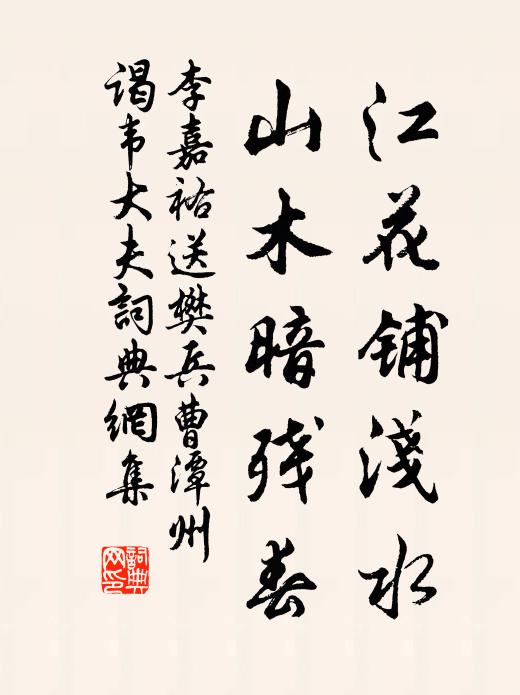 江花铺淺水
山木暗残春
李嘉祐送樊兵曹潭州
谒韦大夫詞典網集
詞典网印